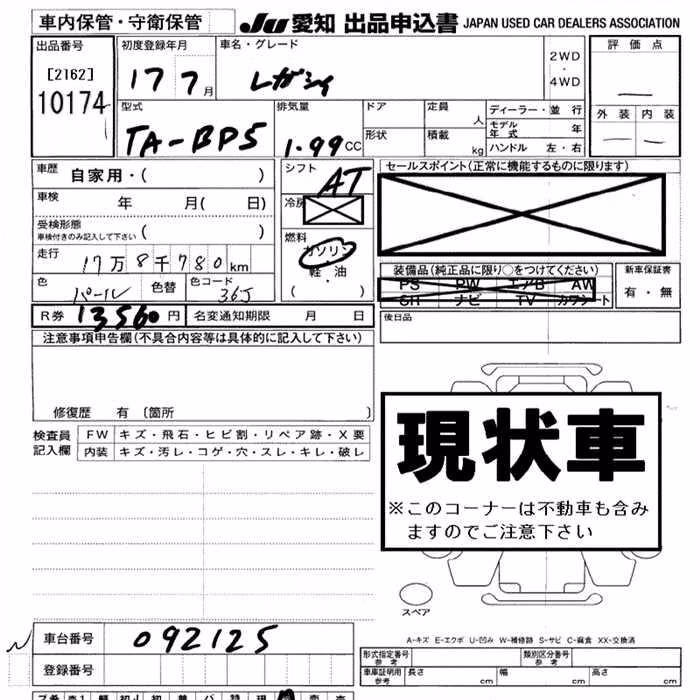 車内保管・守衛保管 JU 愛知 出品申込書 JAPAN USED CAR DEALERS ASSOCIATION
出品番号 初度登録年月 車名・グレード 評価点
[2162] 17 7月 レガシィ 2WD・4WD
10174 型式 排気量 ドア 定員 人 ディーラー・並行 外装 内装
TA-BP5 1.99cc 形状 積載 kg モデル年式 年
ハンドル 左・右
車歴 自家用・( ) シフト AT セールスポイント(正常に機能するものに限ります)
車検 年 月( 日) 冷房
受検形態 車検付きのみ記入して下さい ( ) 燃料 ガソリン・軽油 ( )
走行 17万8千780km 装備品(純正品に限り○をつけてください) 新車保証書
色 パール 色替 色コード 36J PS PW エアB AW 有・無
SR ナビ TV カワシート
R券 13560円 名変通知期限 月 日 後日品
注意事項申告欄(不具合内容等は具体的に記入して下さい)
修復歴 有 〔箇所 〕
検査員記入欄 FW キズ・飛石・ヒビ割・リペア跡・X要
内装 キズ・汚レ・コゲ・穴・スレ・キレ・破レ
現状車
※このコーナーは不動車も含み
ますのでご注意下さい
スペア
A-キズ E-エクボ U-凹み W-補修跡 S-サビ C-腐食 XX-交換済
車台番号 092125 形式指定番号 参考 類別区分番号 参考
登録番号 車庫証明用 参考 長さ cm 幅 cm 高さ cm